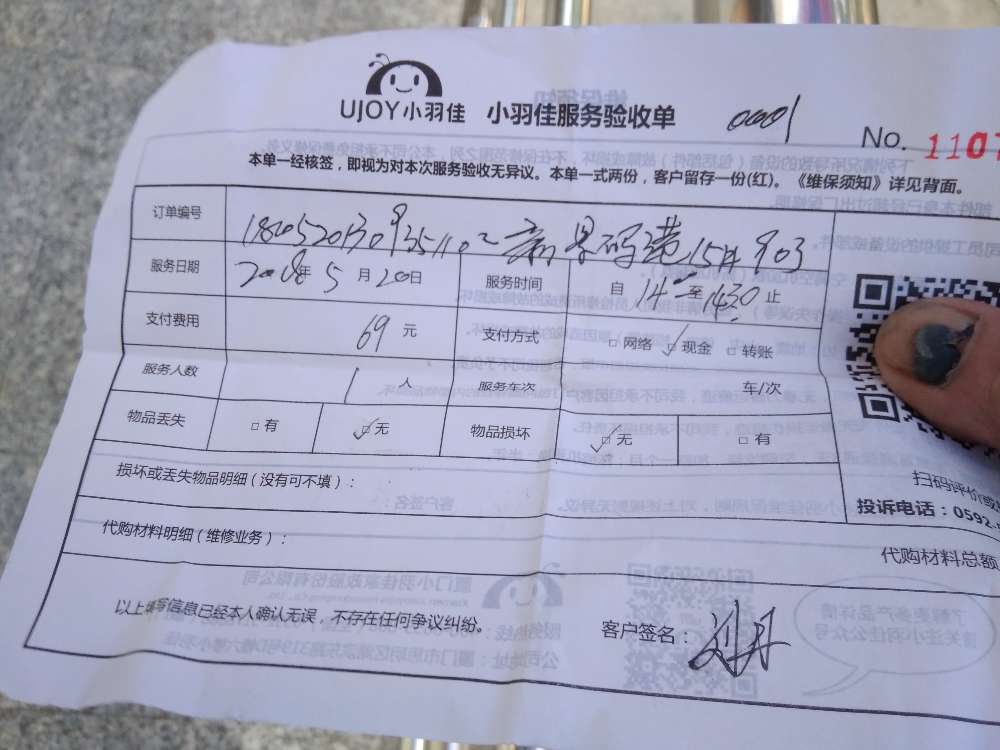 UJOY小羽佳 小羽佳服务验收单 0001 No. 1107
本单一经核签，即视为对本次服务验收无异议。本单一式两份，客户留存一份(红)。《维保须知》详见背面。
订单编号 15# 903
服务日期 2018年5月20日 服务时间 自14:00至1430止
支付费用 69元 支付方式 □网络 ☑现金 □转账
服务人数 1人 服务车次 车/次
物品丢失 □有 ☑无 物品损坏 ☑无 □有
损坏或丢失物品明细（没有可不填）：
扫码评价或
投诉电话：0592-
代购材料明细（维修业务）：
代购材料总额
以上填写信息已经本人确认无误，不存在任何争议纠纷。 客户签名：